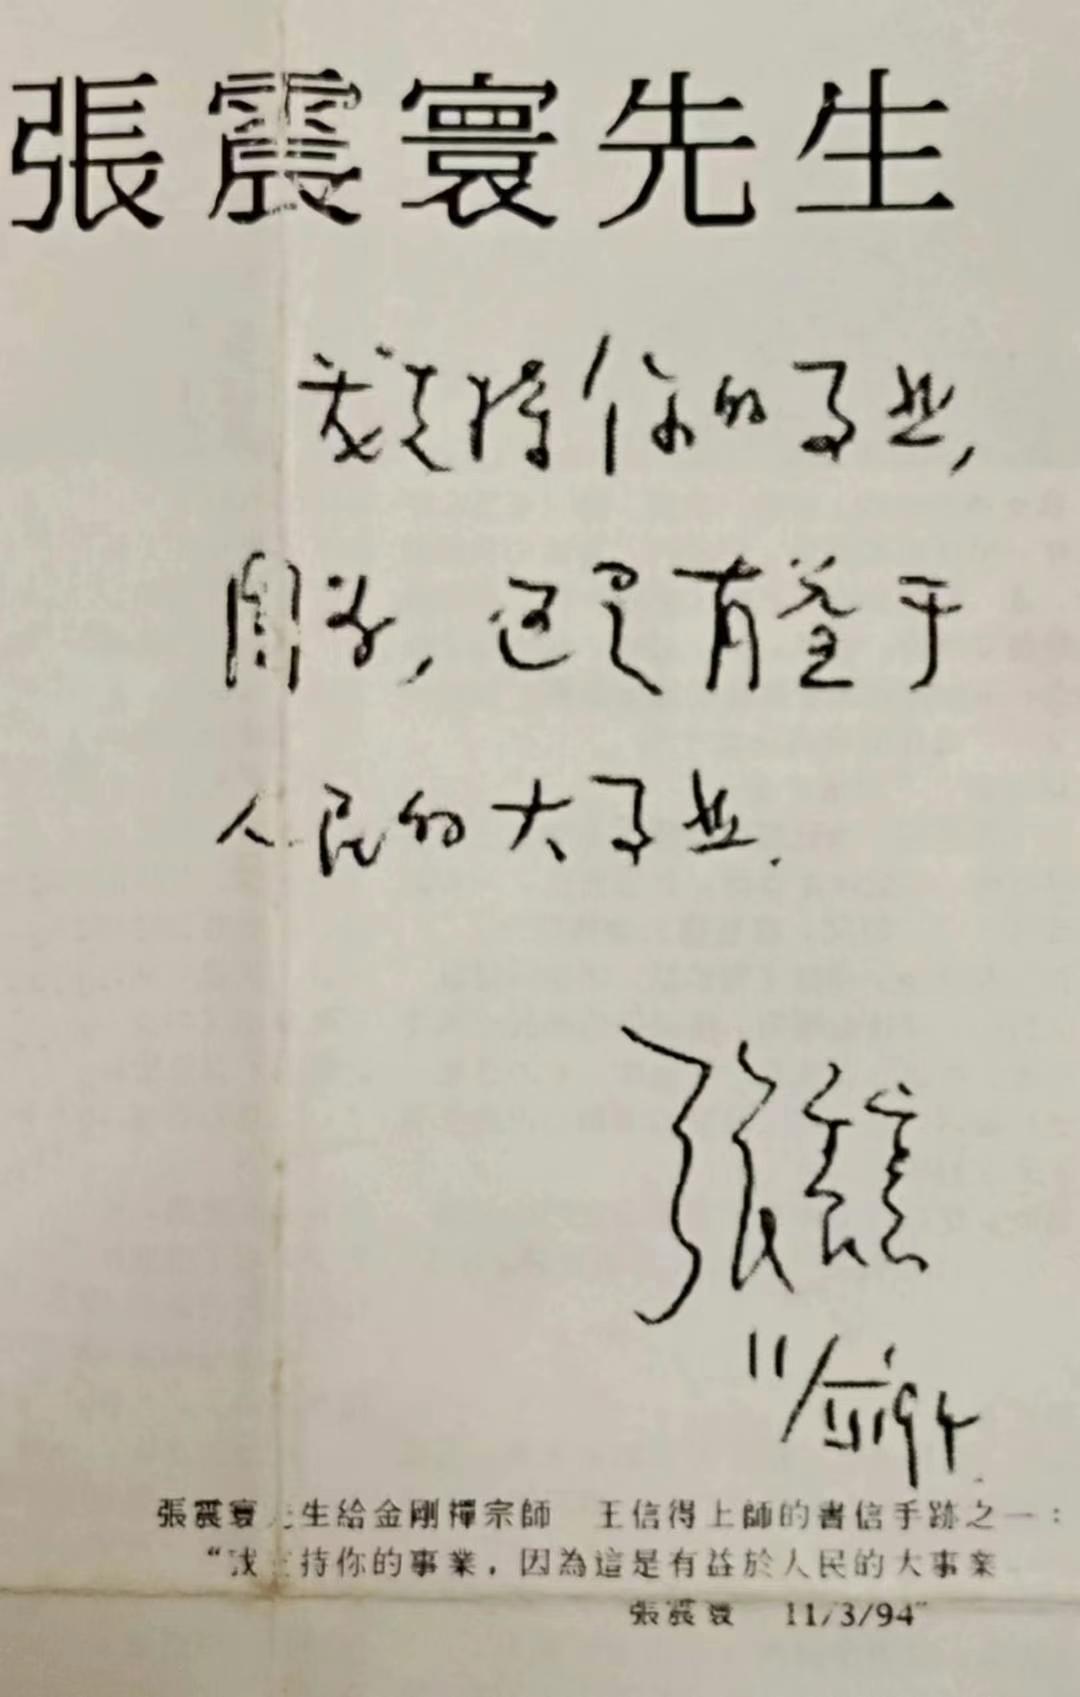 張震寰先生
我支持你的事业,
因为,这是有益于
人民的大事业.
张震寰
11/III 94.
張震寰先生給金剛禪宗師 王信得上師的書信手跡之一:
“我支持你的事業,因為這是有益於人民的大事業
張震寰 11/3/94”